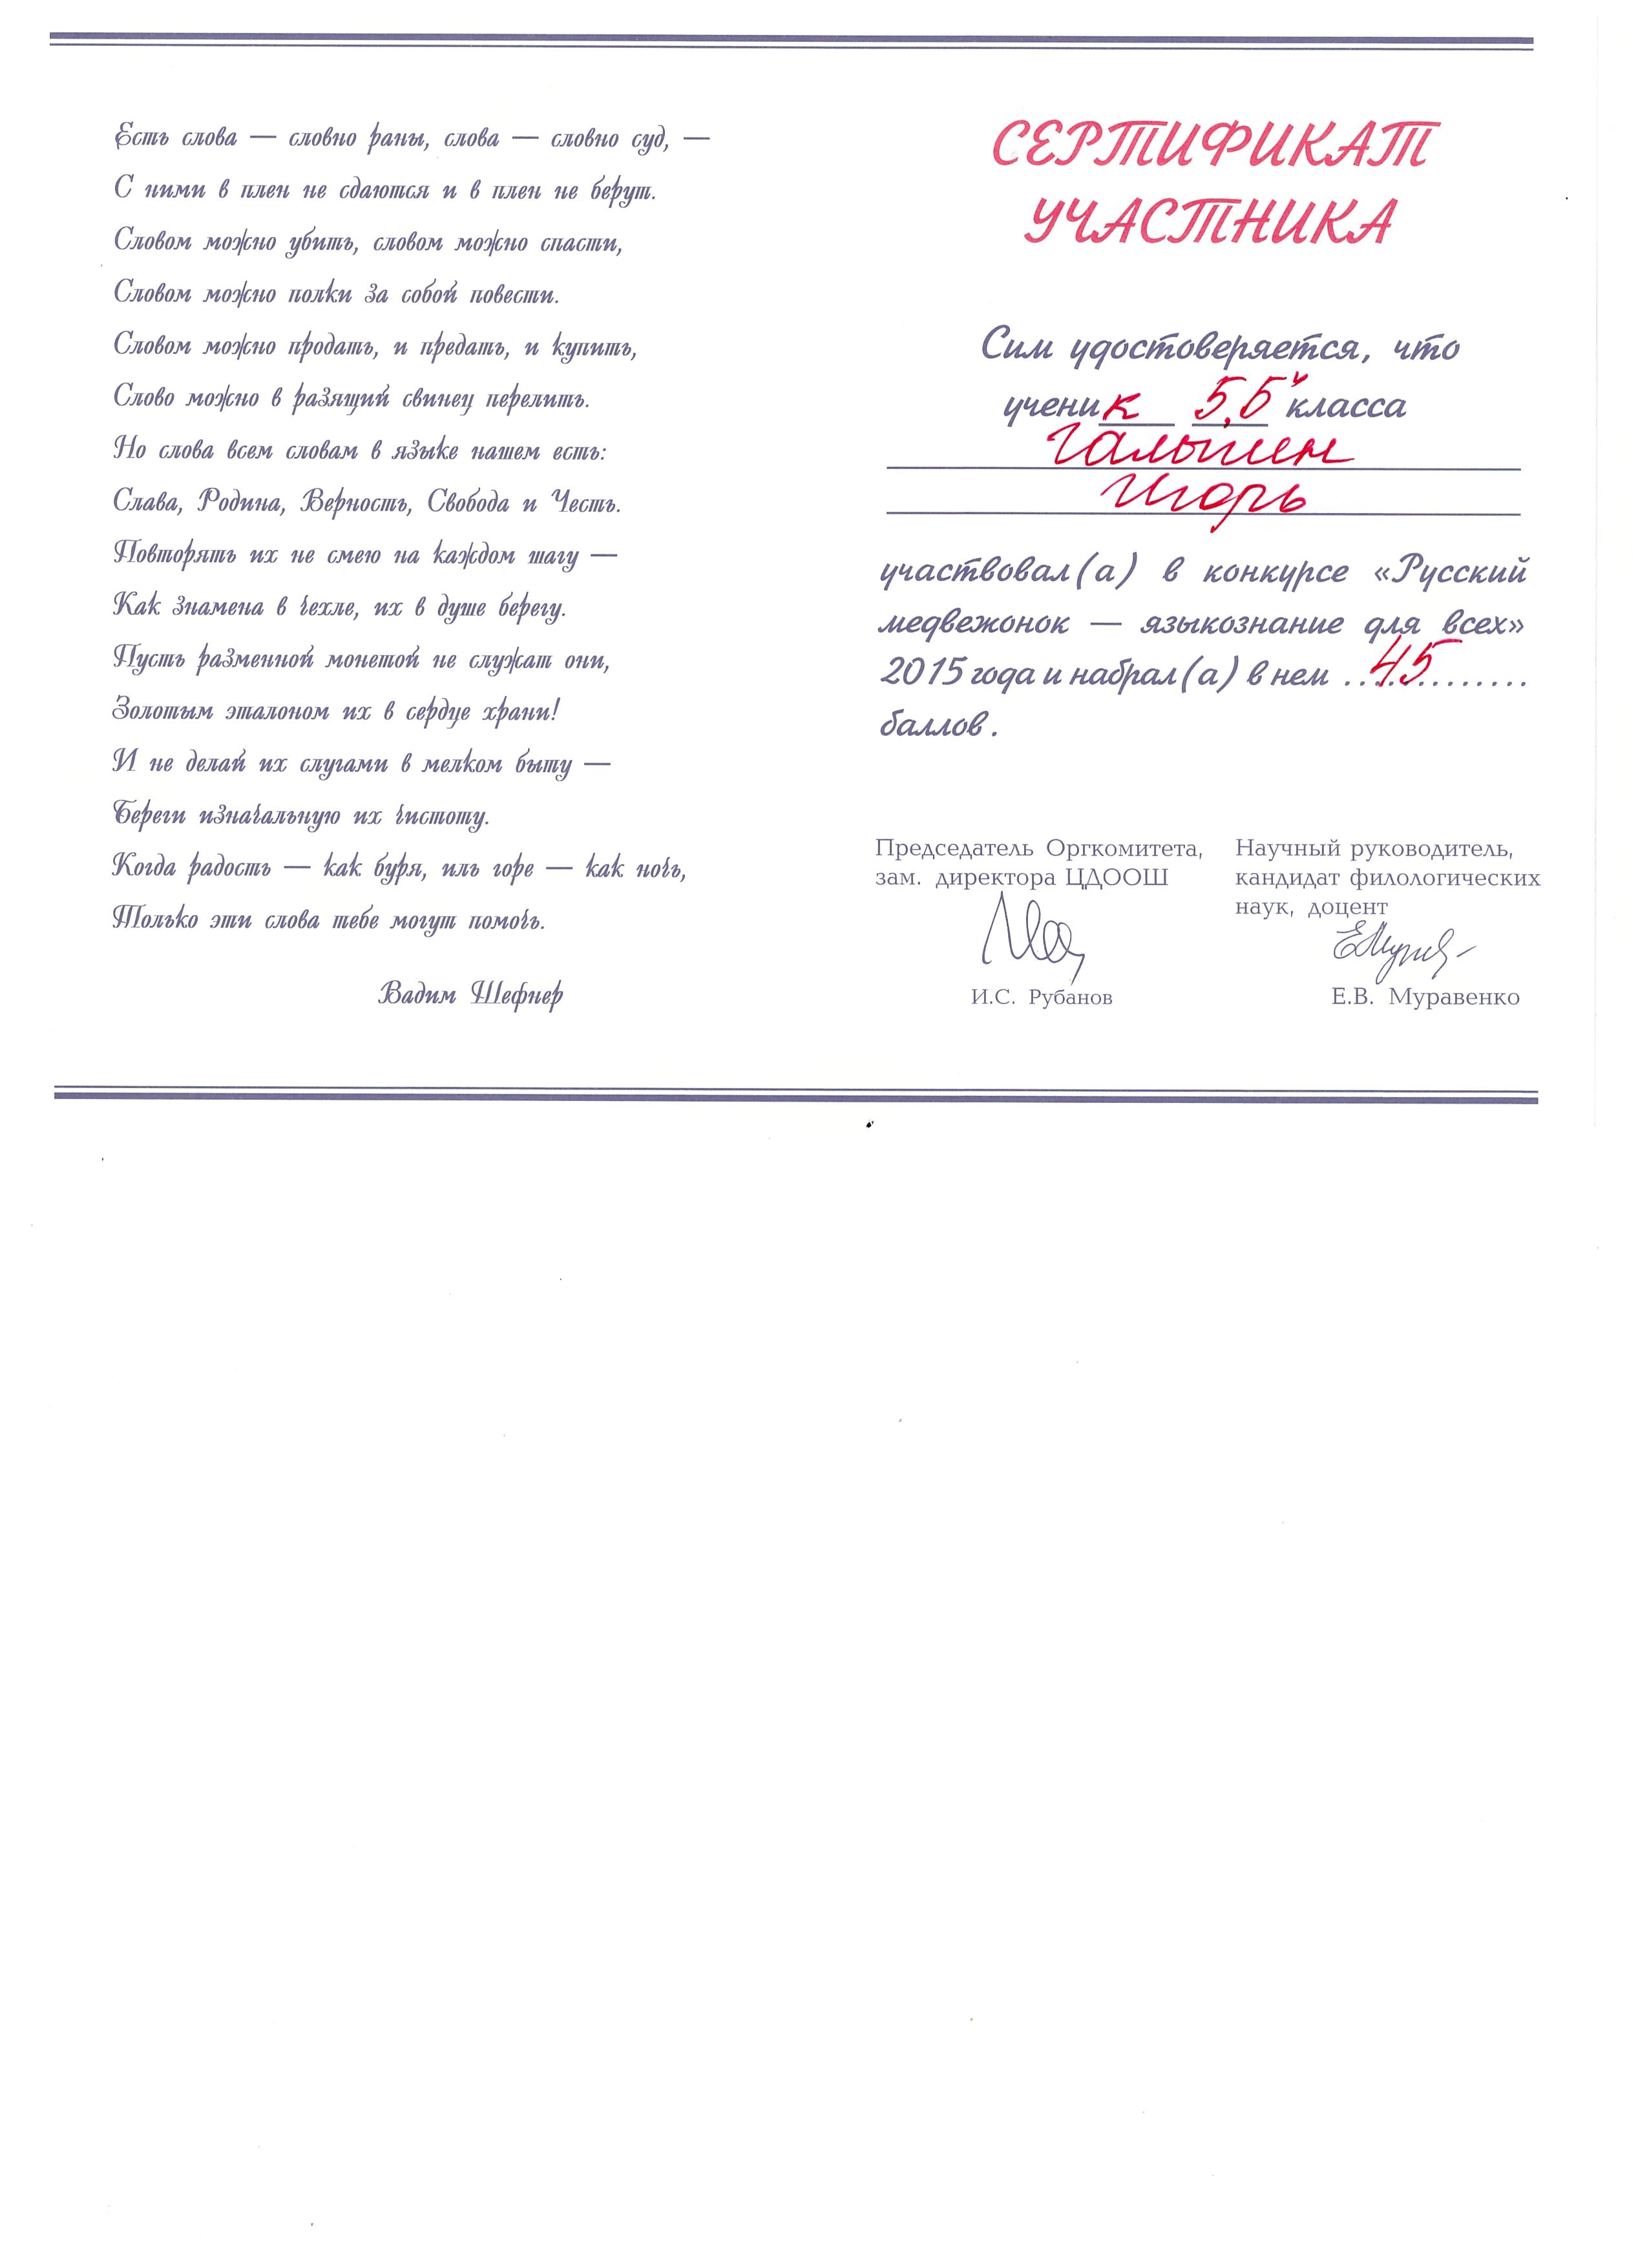 Есть слова — словно раны, слова — словно суд, —
С ними в плен не сдаются и в плен не берут.
Словом можно убить, словом можно спасти,
Словом можно полки за собой повести.
Словом можно продать, и предать, и купить,
Слово можно в разящий свинец перелить.
Но слова всем словам в языке нашем есть:
Слава, Родина, Верность, Свобода и Честь.
Повторять их не смею на каждом шагу —
Как знамена в чехле, их в душе берегу.
Пусть разменной монетой не служат они,
Золотым эталоном их в сердце храни!
И не делай их слугами в мелком быту —
Береги изначальную их чистоту.
Когда радость — как буря, иль горе — как ночь,
Только эти слова тебе могут помочь.
Вадим Шефнер
СЕРТИФИКАТ
УЧАСТНИКА
Сим удостоверяется, что
ученик 5„Б" класса
Игорь
участвовал(а) в конкурсе «Русский
медвежонок — языкознание для всех»
2015 года и набрал(а) в нем 45
баллов.
Председатель Оргкомитета,
зам. директора ЦДООШ
И.С. Рубанов
Научный руководитель,
кандидат филологических
наук, доцент
Е.В. Муравенко